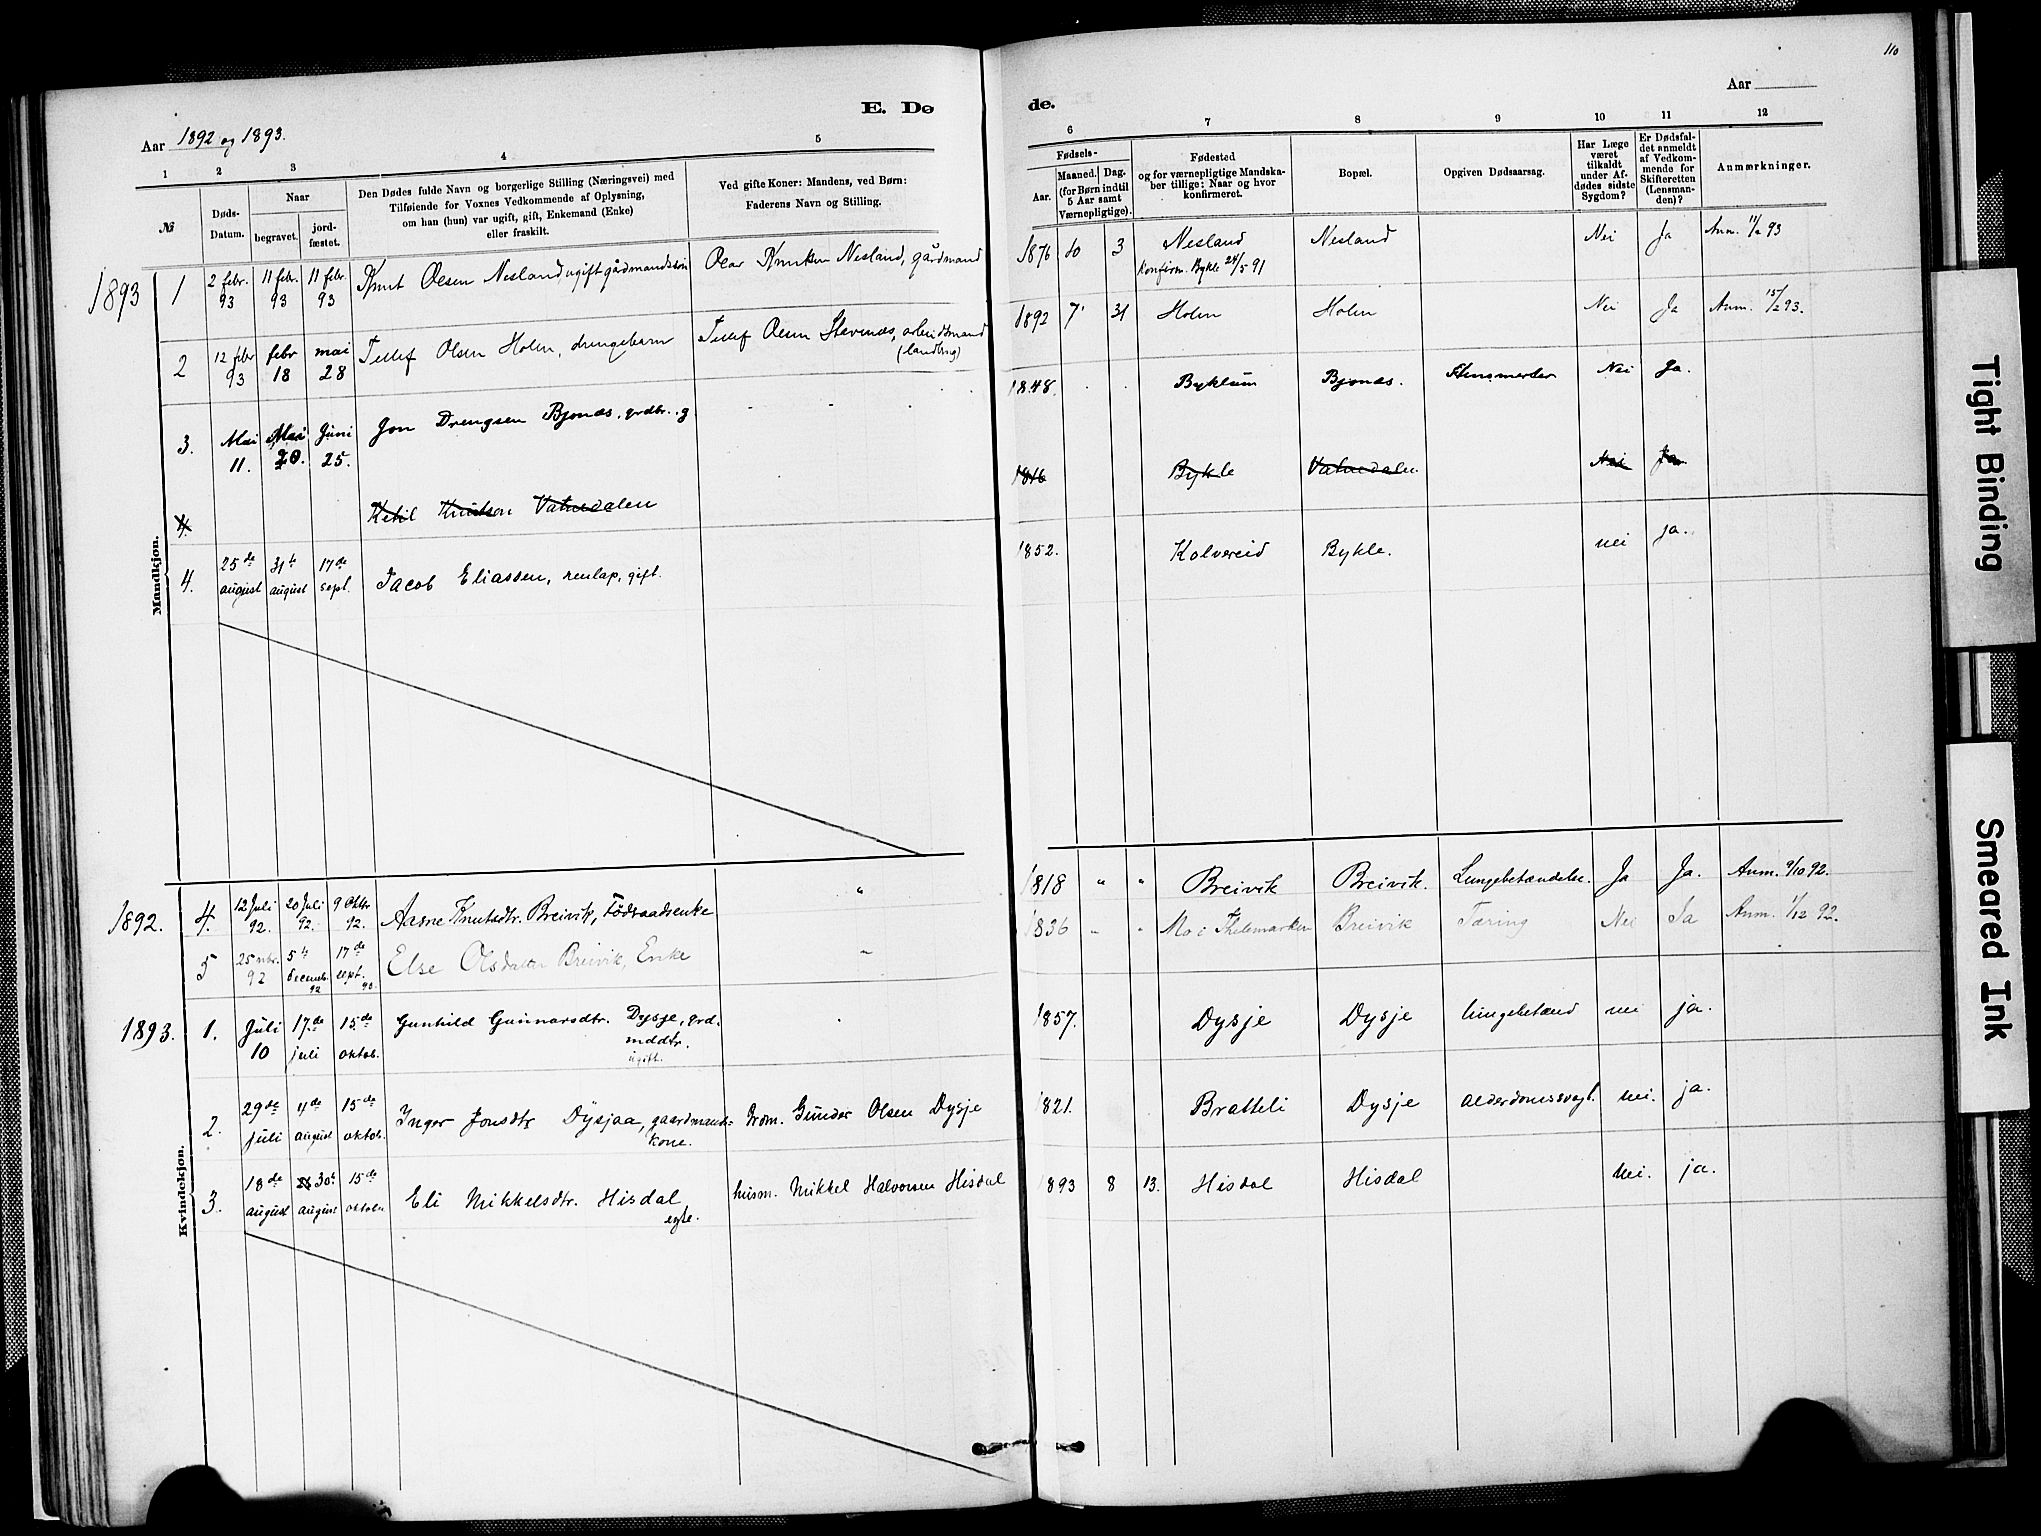 110
E. Dø
de.
Aar 1892 og 1893.
Aar
1 2 3 4 5
6 7 8 9 10 11 12
№
Døds-
Datum.
Naar
begravet.
jord-
fæstet.
Den Dødes fulde Navn og borgerlige Stilling (Næringsvei) med
Tilføiende for Voxnes Vedkommende af Oplysning,
om han (hun) var ugift, gift, Enkemand (Enke)
eller fraskilt.
Ved gifte Koner: Mandens, ved Børn:
Faderens Navn og Stilling.
Fødsels-
Aar.
Maaned.
Dag.
(for Børn indtil
5 Aar samt
Værnepligtige).
Fødested
og for værnepligtige Mandska-
ber tillige: Naar og hvor
konfirmeret.
Bopæl.
Opgiven Dødsaarsag.
Har Læge
været
tilkaldt
under Af-
dødes sidste
Sygdom?
Er Dødsfal-
det anmeldt
af Vedkom-
mende for
Skifteretten
(Lensman-
den)?
Anmærkninger.
Mandkjøn.
1893 1 2 febr. 93 11 febr. 93 11 febr. 93 Knut Olsen Nesland ugift gårdmandssøn Olav Knutsen Nesland, gårdmand 1876 10 3 Nesland Nesland Nei Ja Anm. 11/2 93
konfirm. Bykle 24/5 91
2 12 febr 93 febr 18 mai 28 Tellef Olsen Holen, drengebarn Tellef Olsen Stavenæs, arbeidsmand 1892 7 31 Holen Holen Nei Ja Anm. 15/2 93.
(landbrug)
3. Mai 11. Mai 20. Juni 25. Jon Drengsen Bjonæs, grdbr. g 1848. Byklum Bjonæs. Nei Ja.
4. Ketil Knutson Vatnedalen 1816 Bykle Vatnedalen Nei Ja
4. 25de august 31te august 17de sept. Jacob Eliassen, renlap, gift. 1852. Kolvereid Bykle. nei ja.
Kvindekjøn.
1892. 4. 12 Juli 92. 20 Juli 92. 9 Oktbr 92. Aasne Knutsdtr. Breivik, Födraadsenke " 1818 " " Breivik Breivik. Lungebetændelse. Ja Ja. Anm. 9/10 92.
5 25 nbr. 92 5te decemb. 92 17de sept. 93. Else Olsdatter Breivik, Enke " 1836 " " Mo i Thelemarken Breivik Tæring Nei Ja Anm. 1/12 92.
1893. 1. Juli 10 17de juli 15de oktob. Gunhild Gunnarsdtr. Dysje, grd.
mddtr.
ugift. 1857. Dysje Dysje lungebetænd nei ja.
2. 29de juli 4de august 15de oktob. Inger Jonsdtr Dysjaa, gaardmands-
kone. Grdm. Gunder Olsen Dysje 1821. Bratteli Dysje alderdomssvagh. nei. ja.
3. 18de august 30te august 15de oktober Eli Mikkelsdtr. Hisdal
egte. husm. Mikkel Halvorsen Hisdal 1893 8 13. Hisdal Hisdal nei. ja.
Tight Binding
Smeared Ink